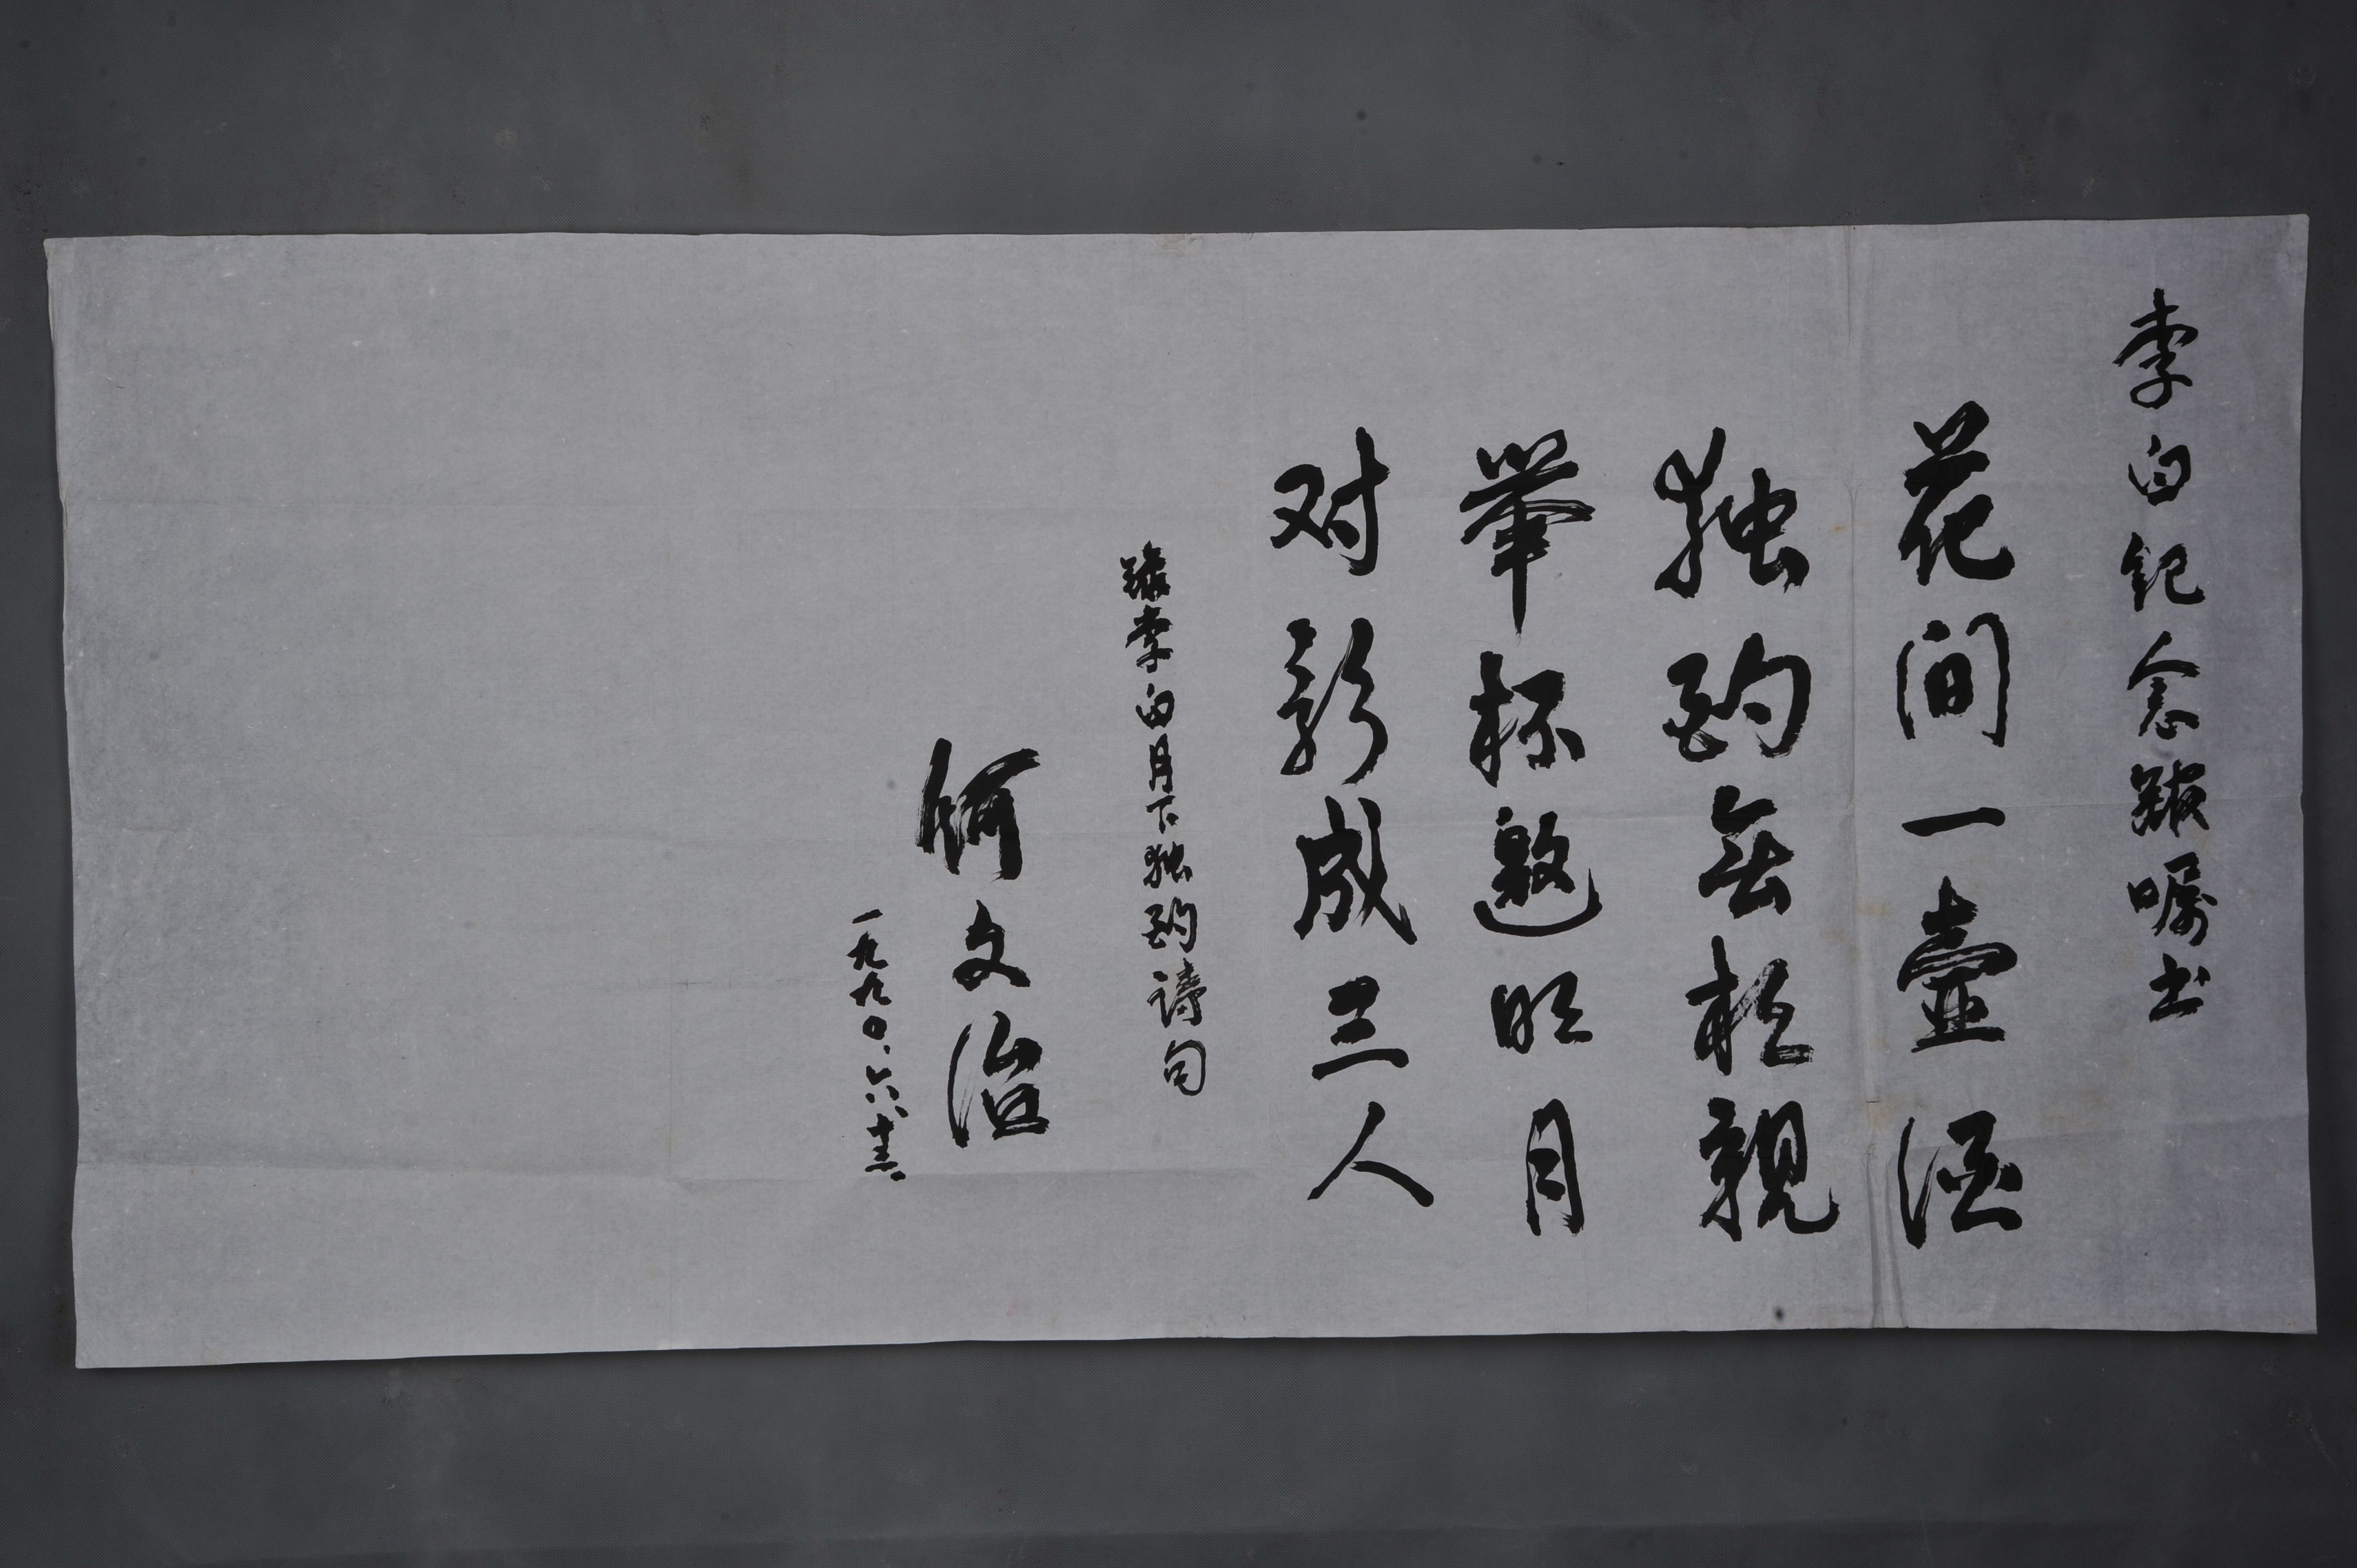 李白纪念馆嘱书
花间一壶酒
独酌无相亲
举杯邀明月
对影成三人
录李白月下独酌诗句
何文治
一九九〇、六、十三、